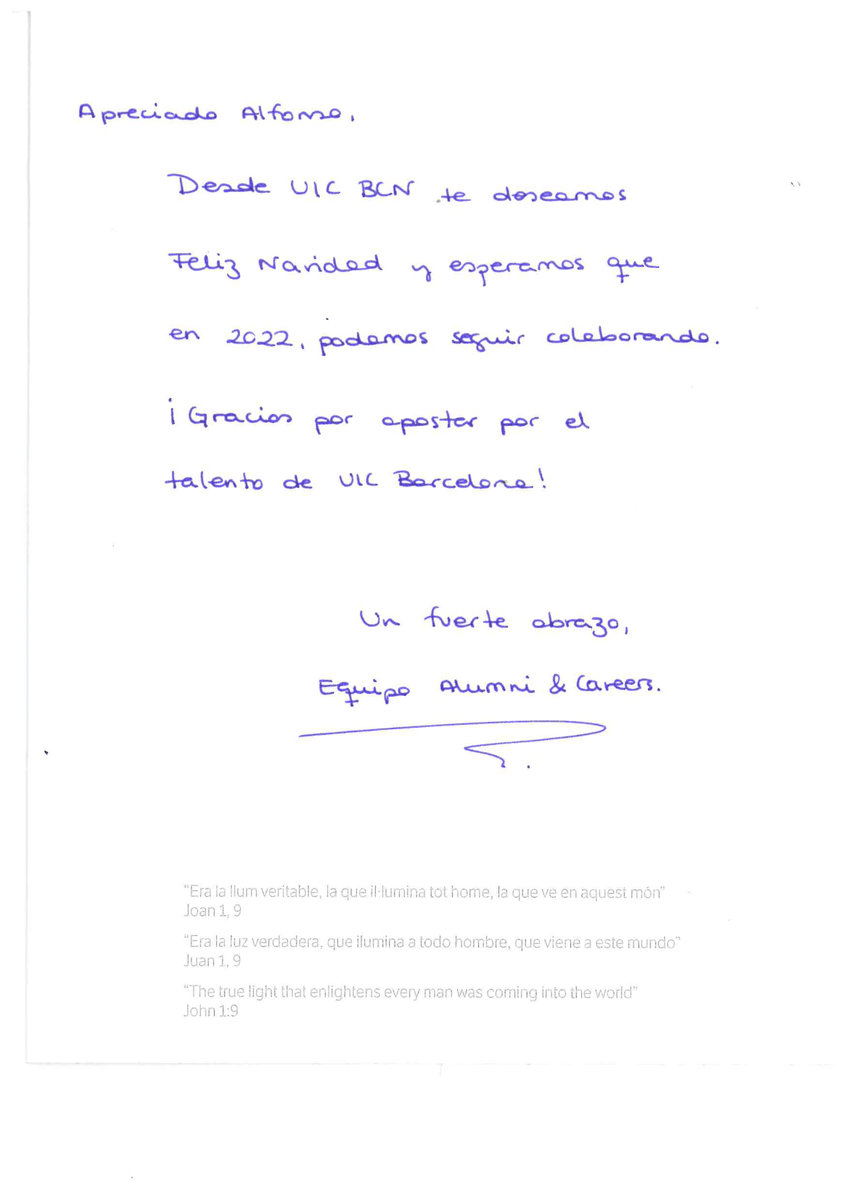 Apreciado Alfonso,
Desde UIC BCN te deseamos
Feliz Navidad y esperamos que
en 2022, podamos seguir colaborando.
¡Gracias por apostar por el
talento de UIC Barcelona!
Un fuerte abrazo,
Equipo Alumni & Careers.
"Era la llum veritable, la que il·lumina tot home, la que ve en aquest món"
Joan 1, 9
"Era la luz verdadera, que ilumina a todo hombre, que viene a este mundo"
Juan 1, 9
"The true light that enlightens every man was coming into the world"
John 1:9